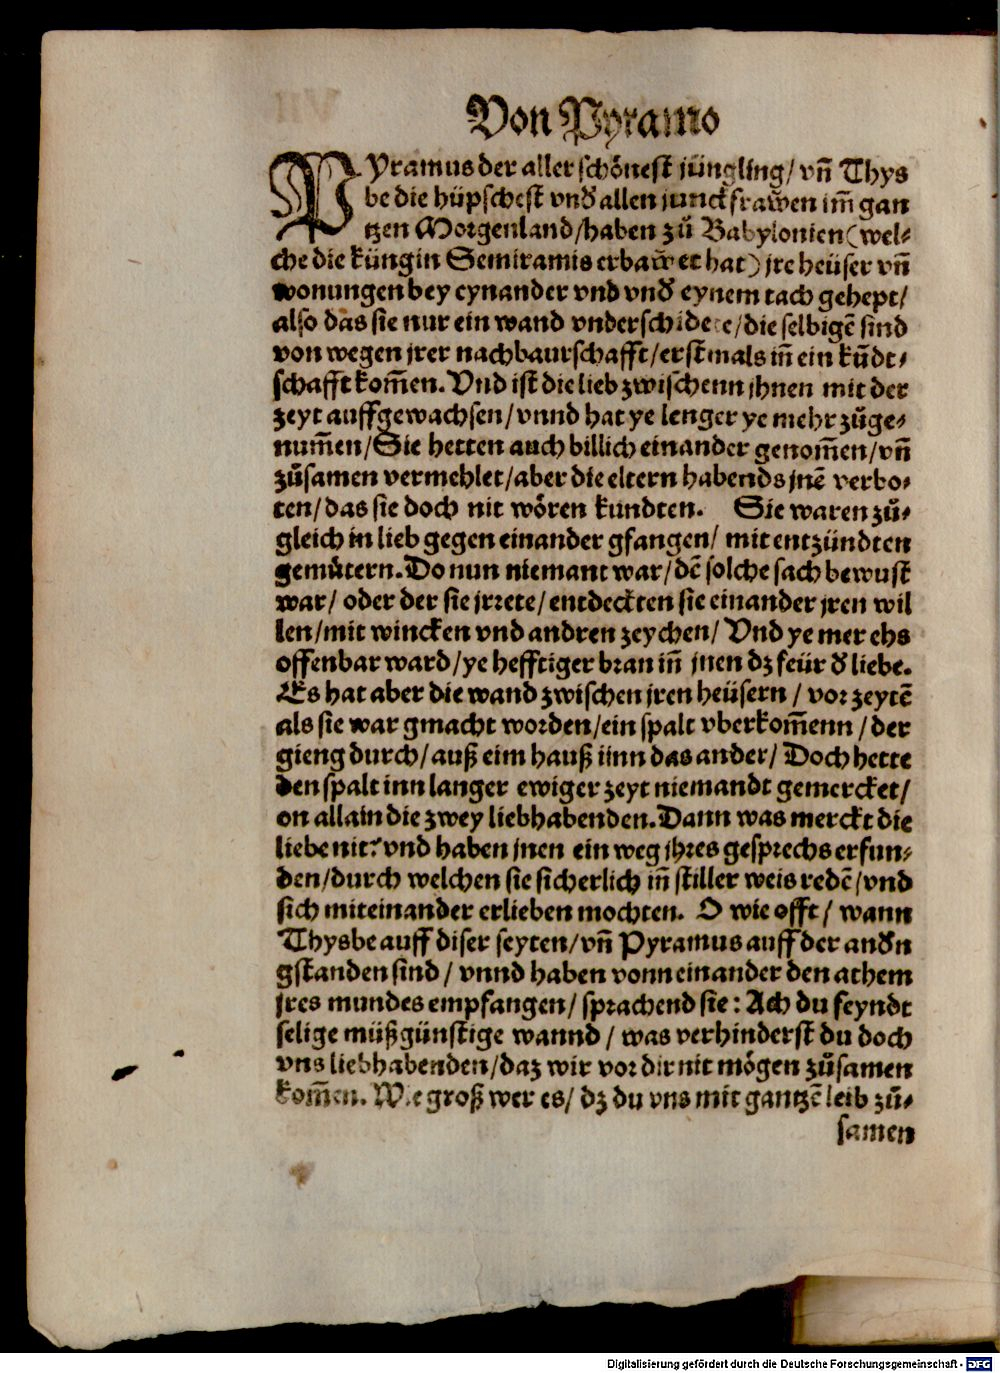 Von Pyramo
PYramus der aller schönest jüngling/ vñ Thys
be die hüpschest vnđ allen junckfraw̃en im̃ gan
tzen Morgenland/haben zů Babylonien (wel⸗
che die küngin Semiramis erbaw̃et hat) jre heüser vñ
wonungen bey eynander vnd vnđ eynem tach gehept/
also das sie nur ein wand vnderschidete/die selbigẽ sind
von wegen jrer nachbaurschafft/erstmals iñ ein kũdt⸗
schafft kom̃en. Vnd ist die lieb zwischenn jhnen mit der
zeyt auffgewachsen/vnnd hat ye lenger ye mehr zůge⸗
num̃en/Sie hetten auch billich einander genom̃en/vñ
zůsamen vermehlet/aber die eltern habends jnẽ verbo⸗
ten/das sie doch nit wören kundten. Sie waren zů⸗
gleich in lieb gegen einander gfangen/ mit entzündten
gemütern. Do nun niemant war/dẽ solche sach bewust
war/ oder der sie jrrete/entdeckten sie einander jren wil
len/mit wincken vnd andren zeychen/ Vnd ye mer ehs
offenbar ward/ye hefftiger bran iñ jnen dz feür đ liebe.
Es hat aber die wand zwischen jren heüsern / vor zeytẽ
als sie war gmacht worden/ein spalt vberkom̃enn/der
gieng durch/auß eim hauß iinn das ander/ Doch hette
den spalt inn langer ewiger zeyt niemandt gemercket/
on allain die zwey liebhabenden. Dann was merckt die
liebe nit? vnd haben jnen ein weg jhres gesprechs erfun⸗
den/durch welchen sie sicherlich iñ stiller weis redẽ/vnd
sich miteinander erlieben mochten. O wie offt/ wann
Thysbe auff diser seyten/vñ Pyramus auff der anđn
gstanden sind/ vnnd haben vonn einander den athem
jres mundes empfangen/ sprachend sie: Ach du feyndt
selige müßgünstige wannd/ was verhinderst du doch
vns liebhabenden/daz wir vor dir nit mögen zůsamen
kom̃en. Wie groß wer es/ dz du vns mit gantzẽ leib zů⸗
samen
Digitalisierung gefördert durch die Deutsche Forschungsgemeinschaft - DFG